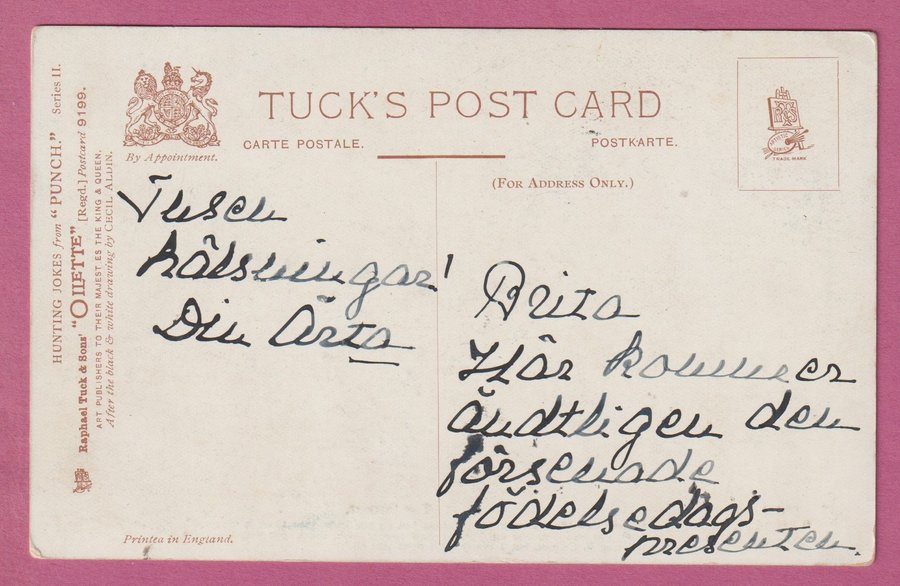 HUNTING JOKES from "PUNCH." Series II.
Raphael Tuck & Sons' "OILETTE" [Regd.] Postcard 9199.
ART PUBLISHERS TO THEIR MAJESTIES THE KING & QUEEN.
After the black & white drawing by CECIL ALDIN.
By Appointment.
TUCK'S POST CARD
CARTE POSTALE.
POSTKARTE.
(FOR ADDRESS ONLY.)
TRADE MARK
Brita
Här kommer
ändtligen den
försenade
födelsedags-
presenten.
Tusen
hälsningar!
Din Ärta
Printed in England.